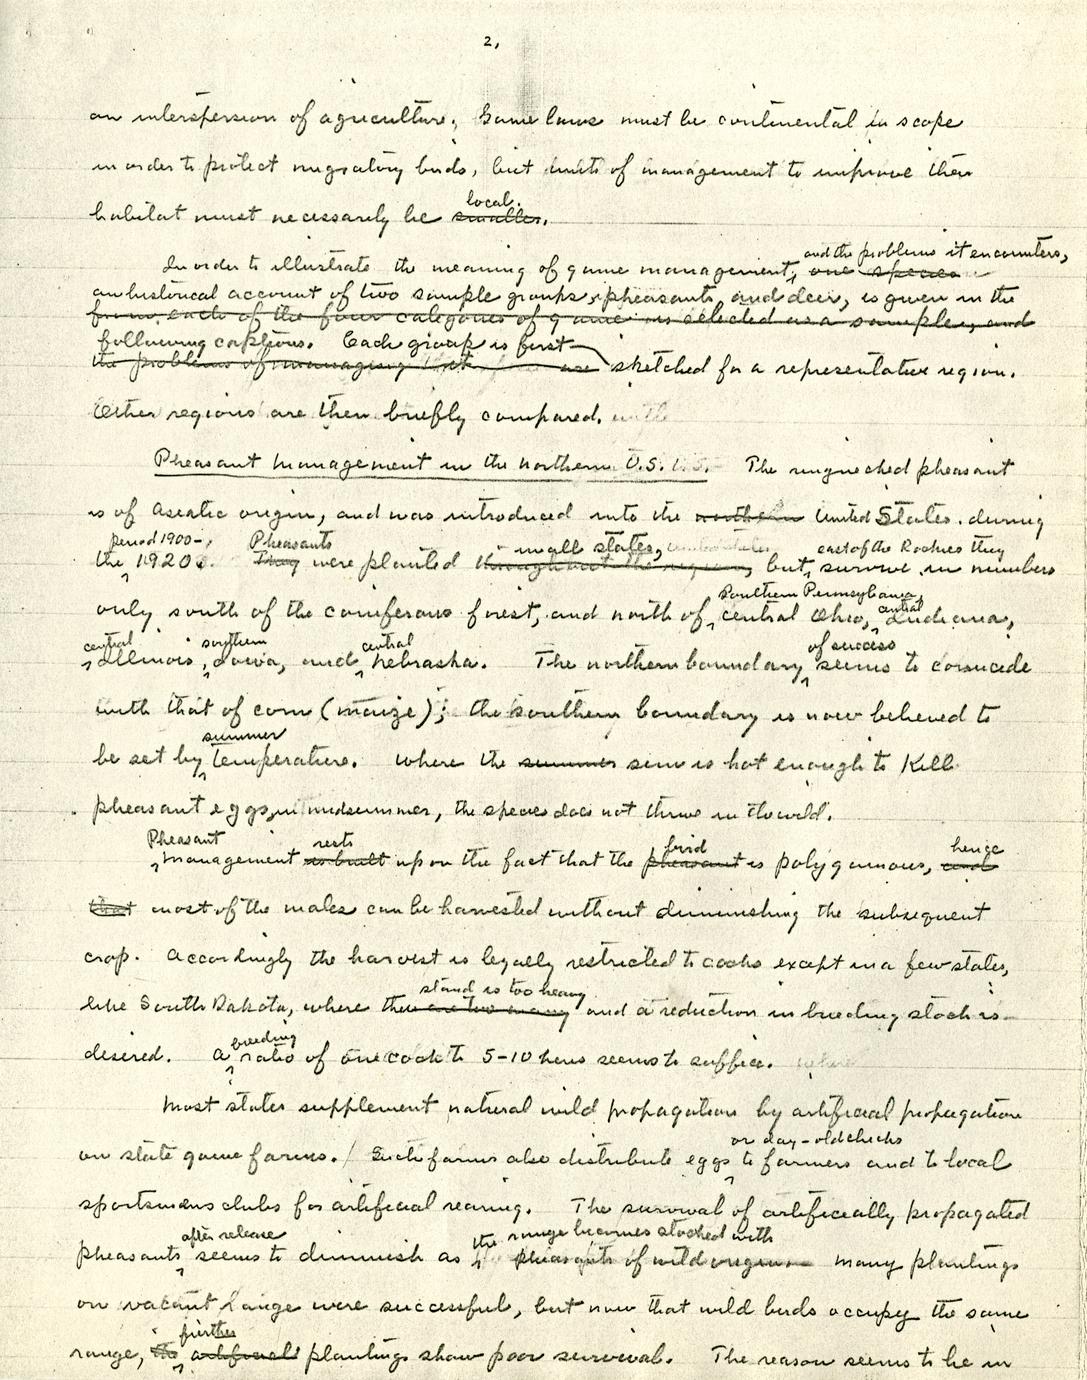 2,
an interspersion of agriculture. Game laws must be continental in scope
in order to protect migratory birds, but units of management to improve their
local.
habitat must necessarily be smaller.
and the problems it encounters,
In order to illustrate the meaning of game management, one species
an historical account of two sample groups, pheasants and deer, is given in the
from each of the four categories of game is selected as a sample, and
following captions. Each group is first
the problems of managing that are sketched for a representative region.
Other regions are then briefly compared. with
Pheasant management in the northern U.S. The ringnecked pheasant
is of Asiatic origin, and was introduced into the northern United States. during
period 1900-, Pheasants small states, east of the Rockies they
the 1920s. They were planted throughout the region, but survive in numbers
southern Pennsylvania, central
only south of the coniferous forest, and north of central Ohio, Indiana,
central southern central of success
Illinois, Iowa, and Nebraska. The northern boundary seems to coincide
with that of corn (maize); the southern boundary is now believed to
summer
be set by temperature. Where the summer sun is hot enough to kill
pheasant eggs in midsummer, the species does not thrive in the wild.
Pheasant rests bird hence
management is built upon the fact that the pheasant is polygamous, and
that most of the males can be harvested without diminishing the subsequent
crop. Accordingly the harvest is legally restricted to cocks except in a few states,
stand is too heavy
like South Dakota, where there are too many and a reduction in breeding stock is
breeding
desired. A ratio of one cock to 5-10 hens seems to suffice. where
Most states supplement natural wild propagation by artificial propagation
or day-old chicks
on state game farms. / Such farms also distribute eggs to farmers and to local
sportsmens clubs for artificial rearing. The survival of artificially propagated
after release the range becomes stocked with
pheasants seems to diminish as pheasants of wild origin many plantings
on vacant range were successful, but now that wild birds occupy the same
further
range, the artificial plantings show poor survival. The reason seems to be in